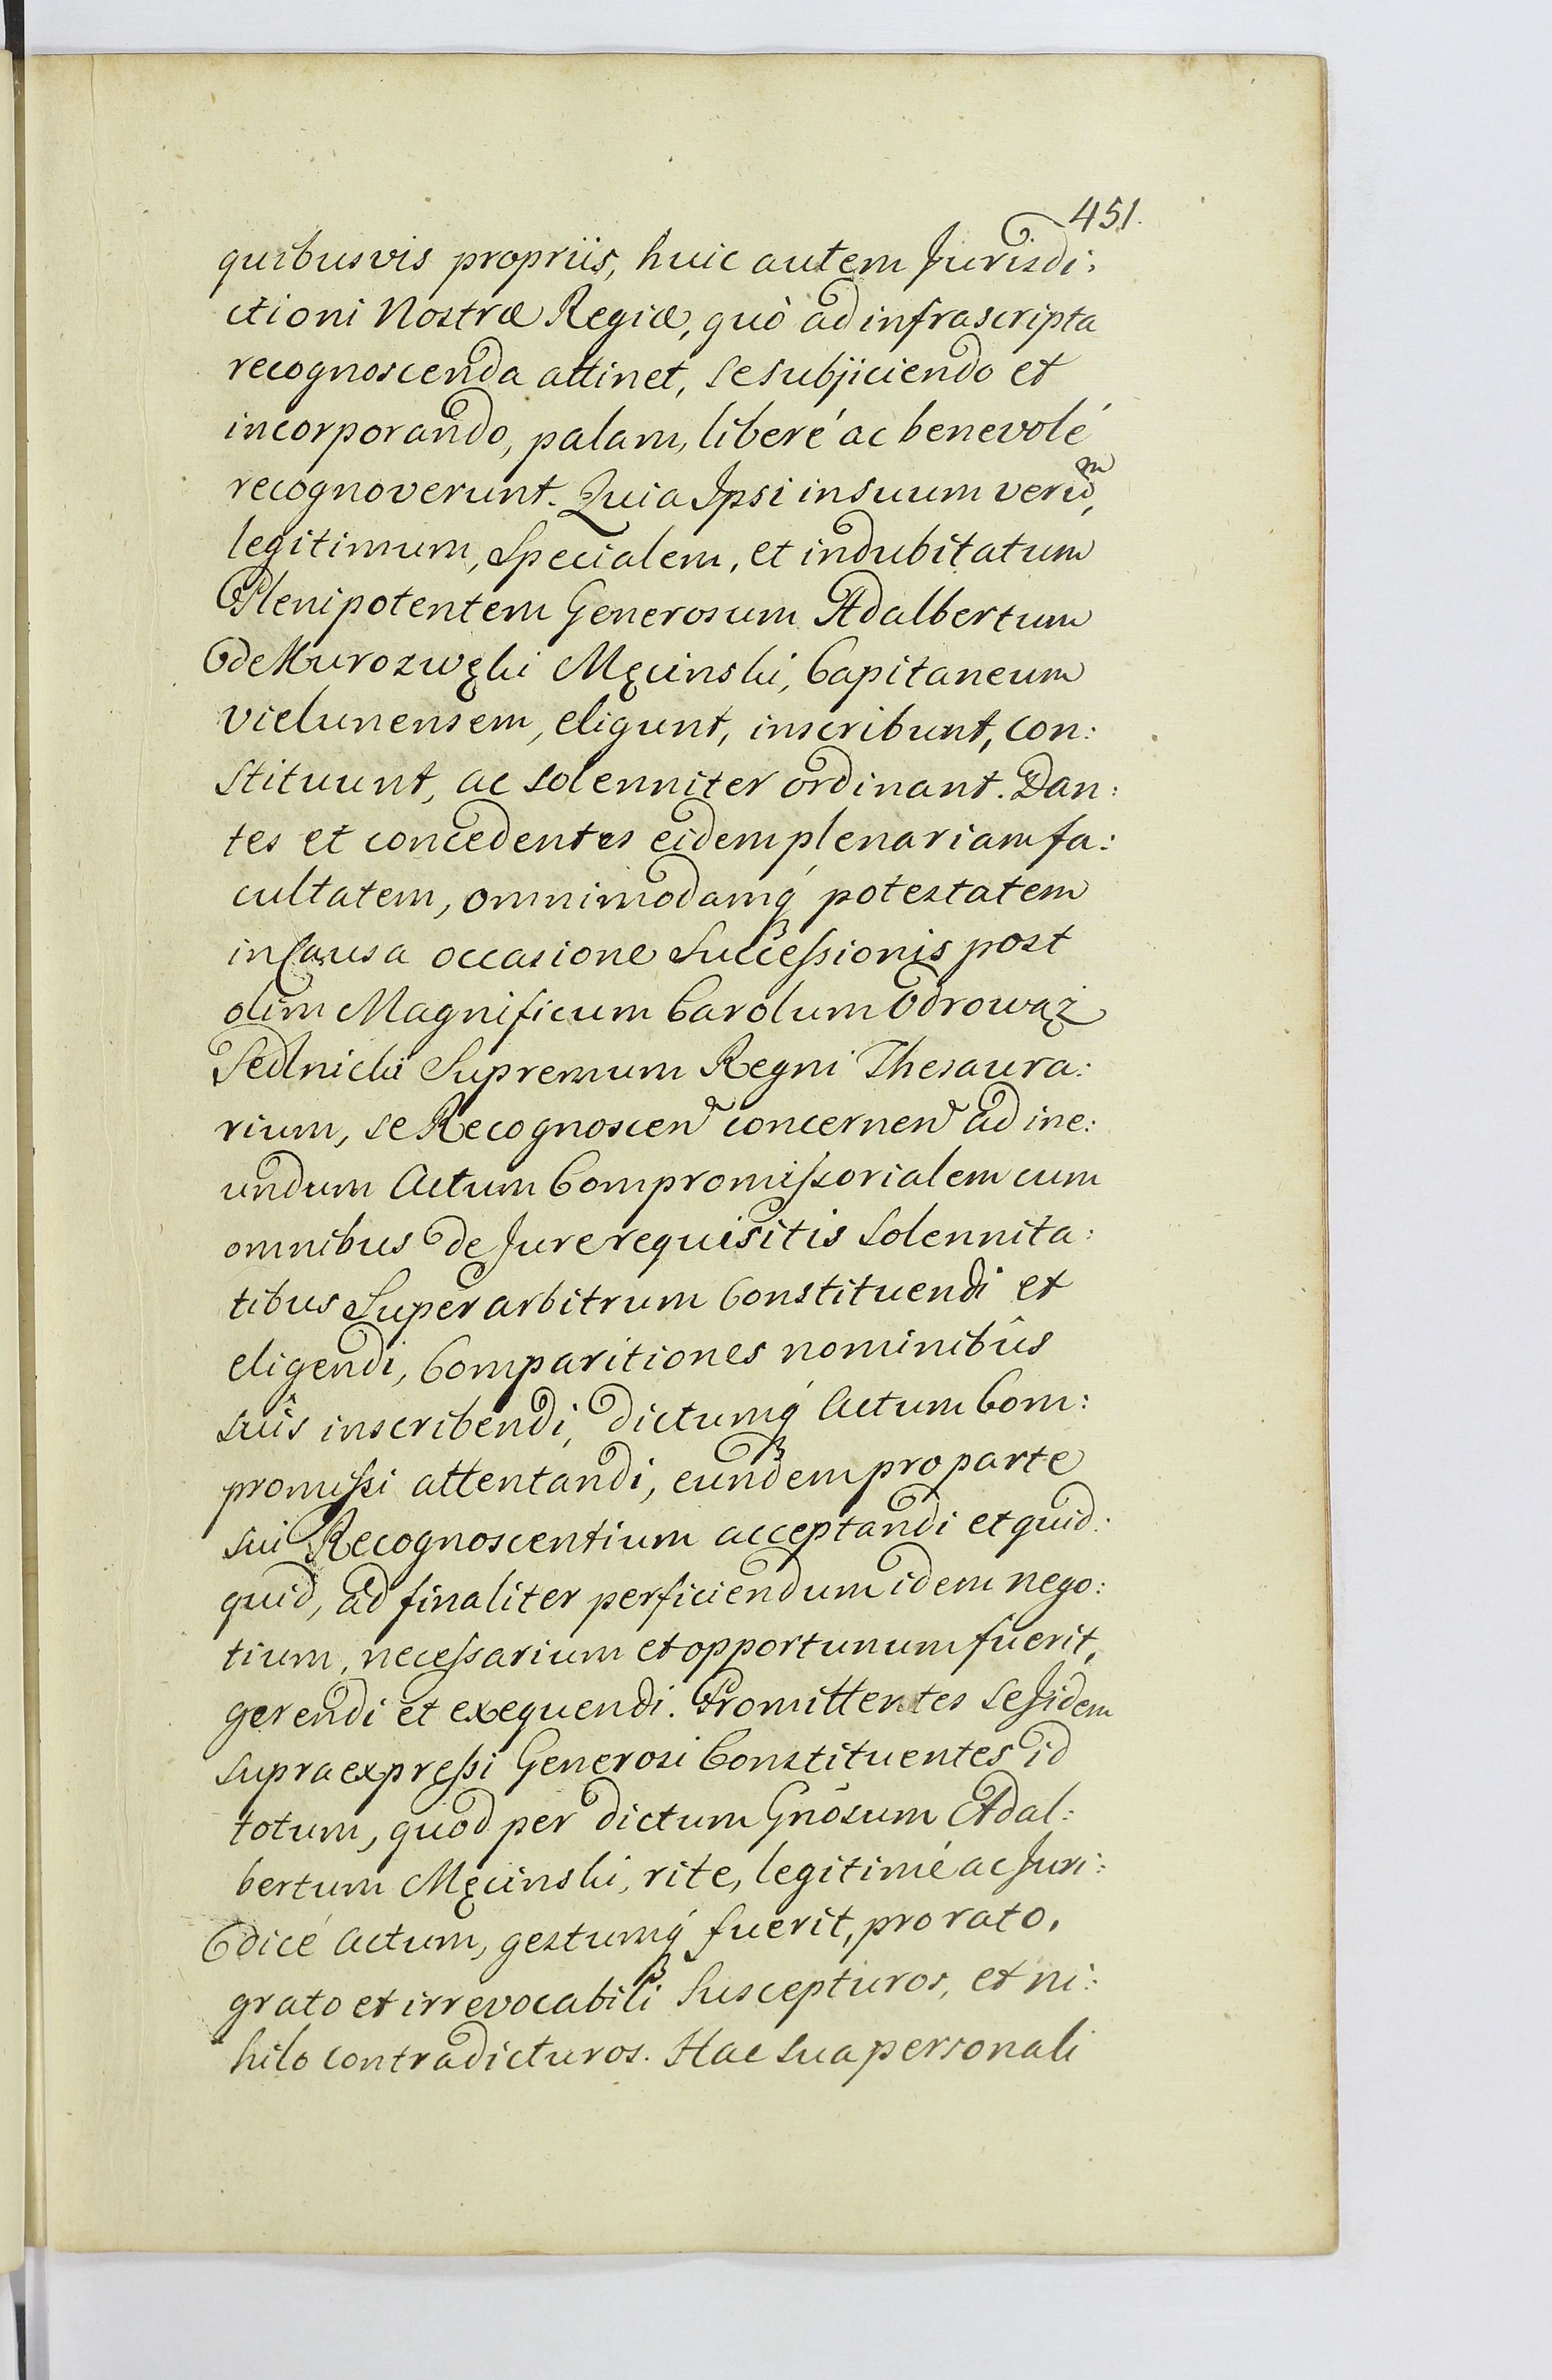 451.
quibusvis propriis, huic autem Jurisdi:
ctioni Nostræ Regiæ, quò ad infrascripta
recognoscenda attinet, se subijciendo et
incorporando, palam, liberé ac benevolé
recognoverunt. Quia Ipsi in suum verũm,
legitimum, Specialem, et indubitatum
Plenipotentem Generosum Adalbertum
de Kurozwęki Męcinski, Capitaneum
Vielunensem, eligunt, inscribunt, con:
stituunt, ac solenniter ordinant. Dan:
tes et concedentes eidem plenariam fa:
cultatem, omnimodamq́ potestatem
in Causa occasione Successionis post
olim Magnificum Carolum Odrowąż
Sedlnicki Supremum Regni Thesaura:
rium, se Recognoscen̄ concernen̄ ad ine:
undum Actum Compromissorialem cum
omnibus de Jure requisitis Solennita:
tibus Superarbitrum Constituendi et
eligendi, Comparitiones nominibûs
suîs inscribendi, dictumq́ Actum Com:
promissi attentandi, eundem pro parte
sui Recognoscentium acceptandi et quid:
quid, ad finaliter perficiendum idem nego:
tium, necessarium et opportunum fuerit,
gerendi et exequendi. Promittentes se Jidem
supraexpressi Generosi Constituentes id
totum, quod per dictum Gnõsum Adal:
bertum Męcinski, rite, legitimé ac Juri:
dicé Actum, gestumq́ fuerit, pro rato,
grato et irrevocabili Suscepturos, et ni:
hilo contradicturos. Hac sua personali